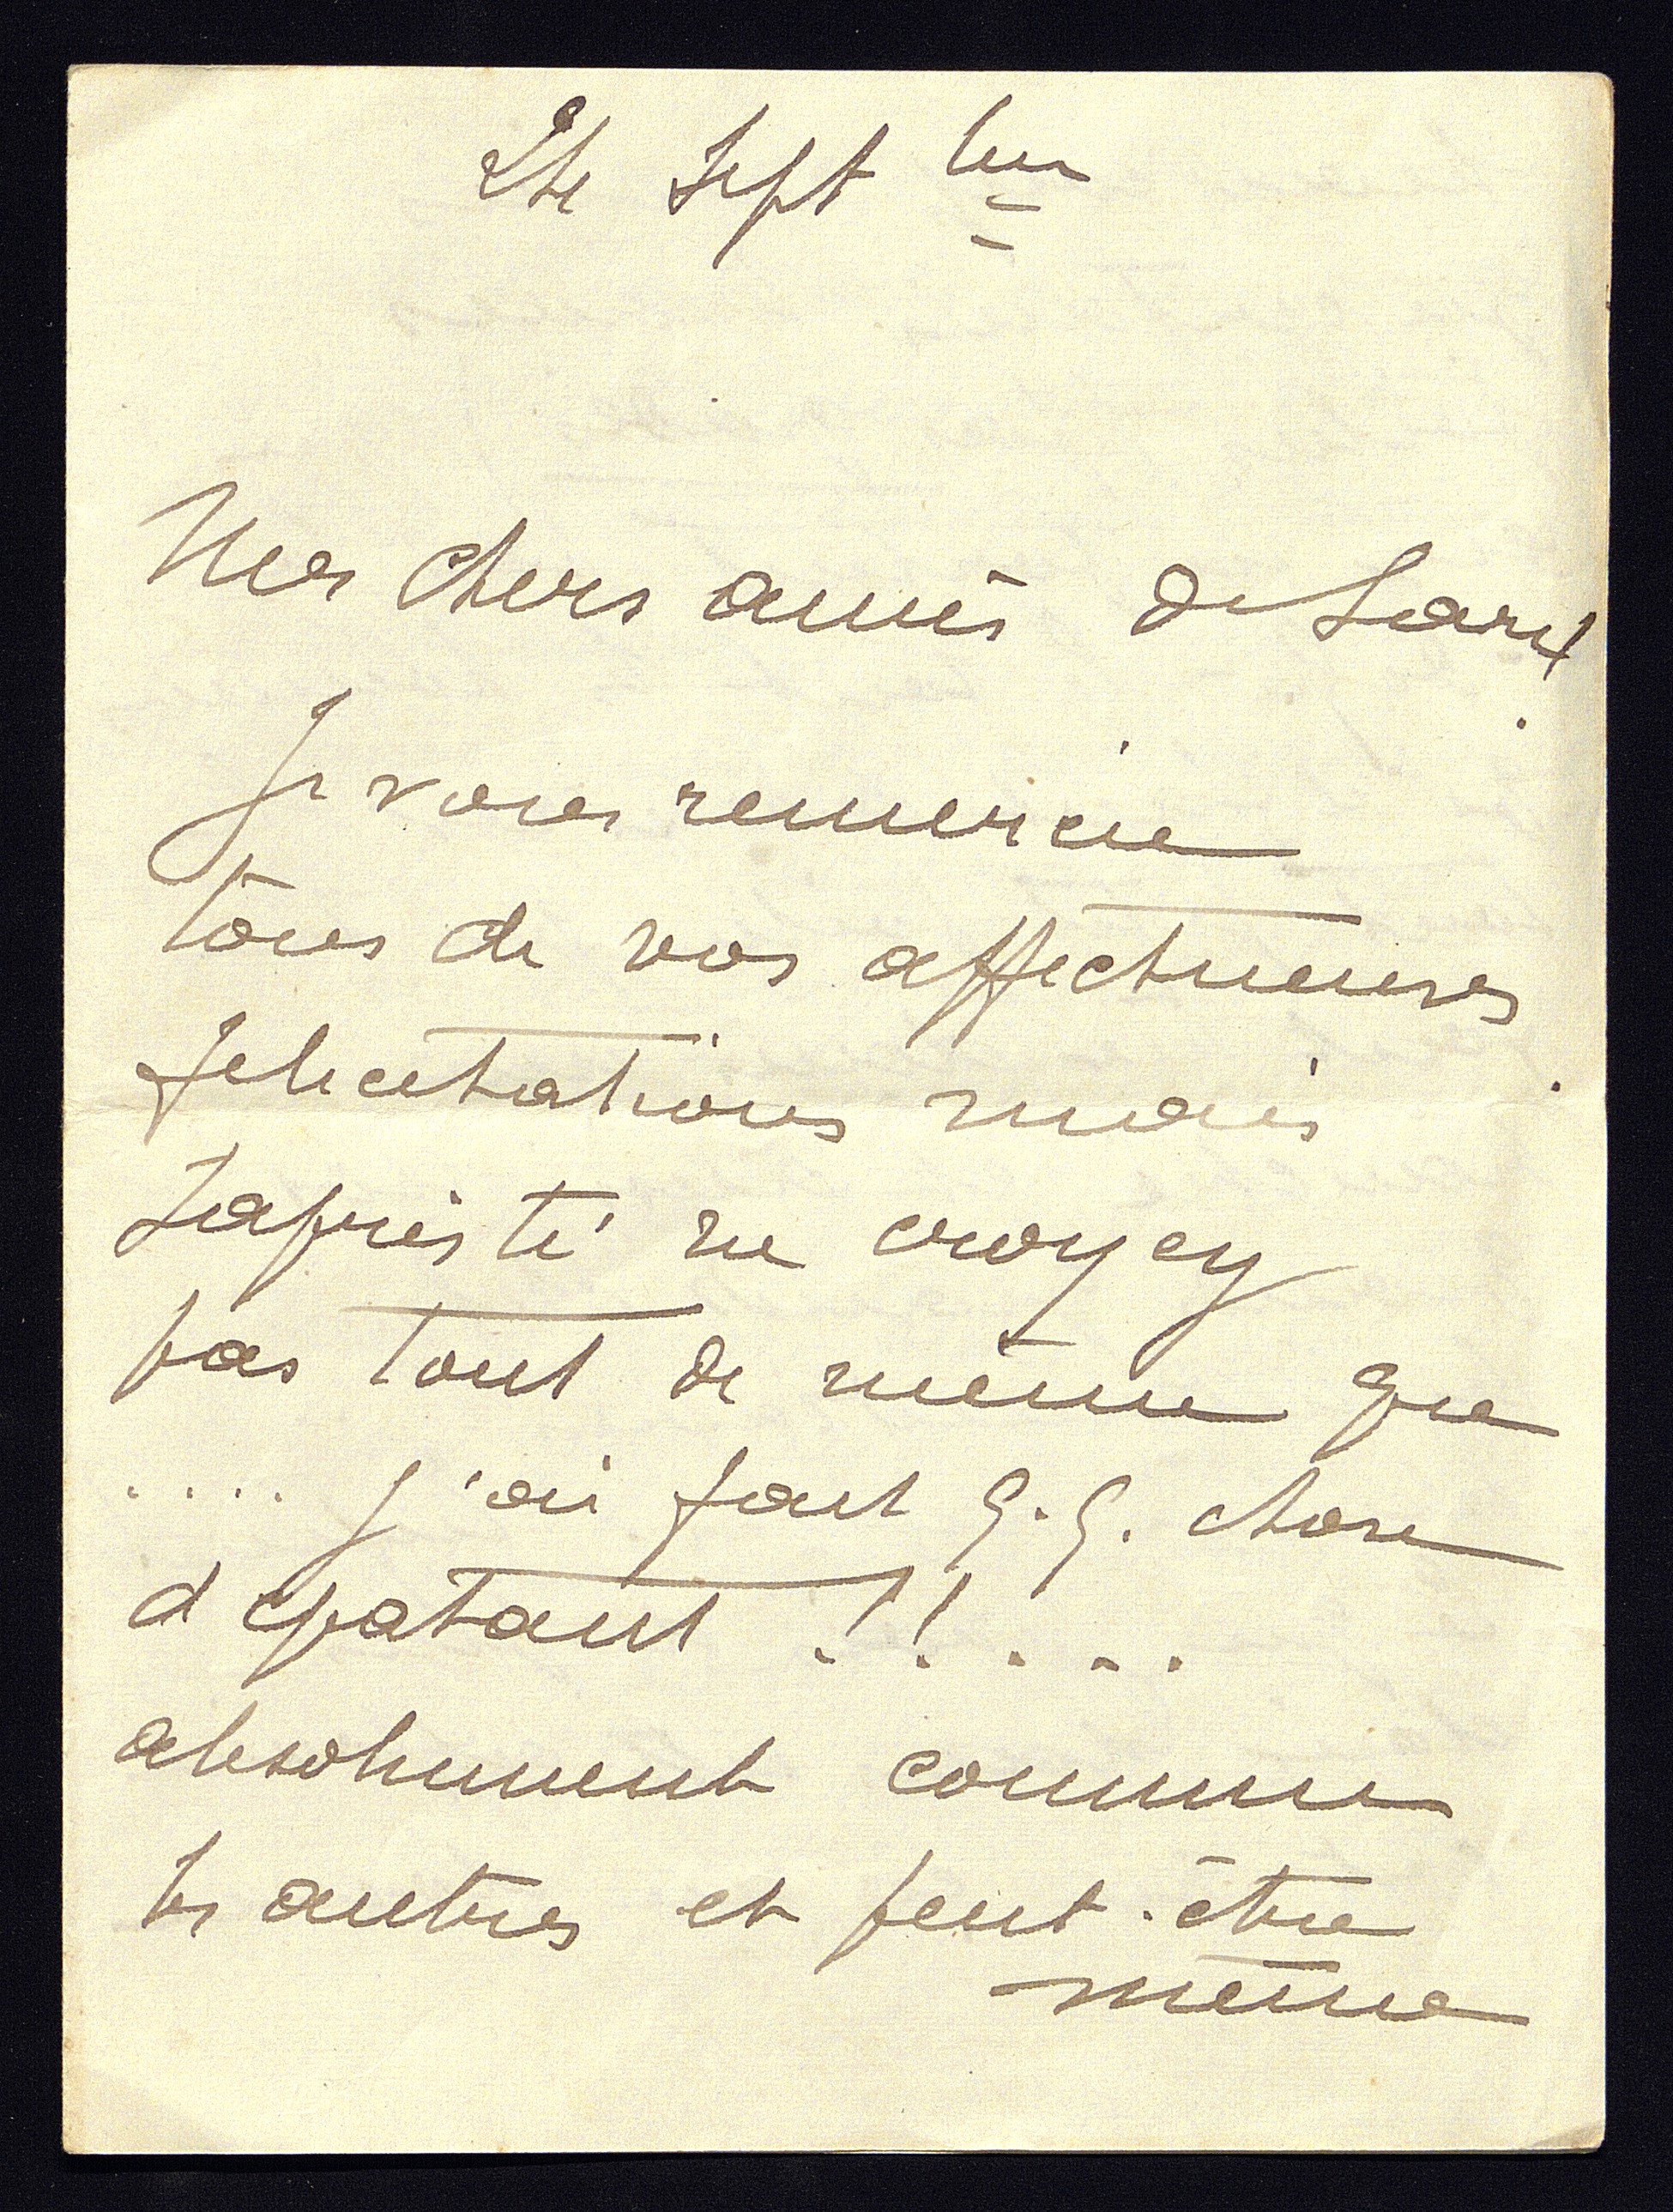 Sept bre
Mes chers amis de
Je vous remercie
tous de vos affectueuses
felicitations mais
sapristi ne croyez
pas tout de même que
.... j'ai fait q.q. chose
d epatant !! ...
absolument comme
les autres et peut-être
même